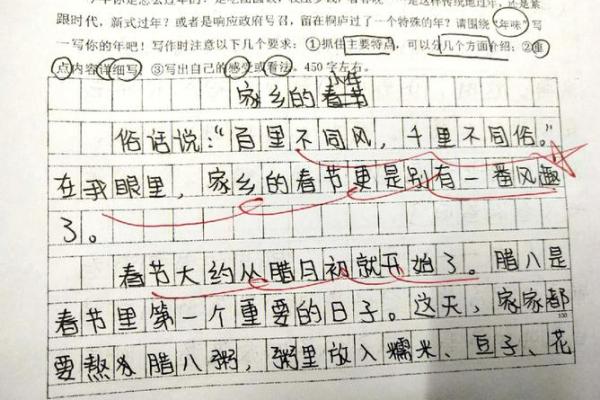 跟时代，新式过年？或者是响应政府号召，留在桐庐过了一个特殊的年？请围绕“年味”写
一写你的年吧！写作时注意以下几个要求：①抓住主要特点，可以分几个方面介绍；②重
点内容详细写；③写出自己的感受或看法。450字左右。
小年
家乡的春节
俗话说：“百里不同风，千里不同俗。”
在我眼里，家乡的春节更是别有一番风趣
了。
春节大约从腊月初就开始了。腊八是
春节里第一个重要的日子。这天，家家都
要熬腊八粥，粥里放入糯米、豆子、花